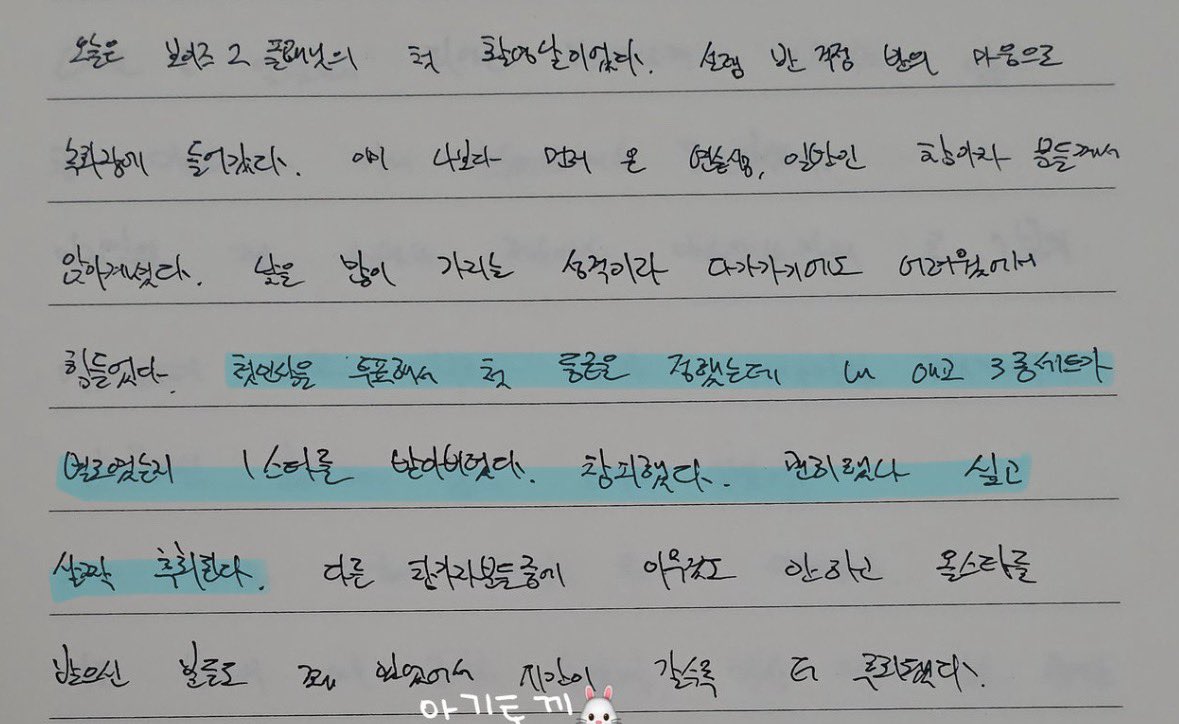 오늘은 보이즈 2 플래닛의 첫 촬영날이었다. 설렘 반 걱정 반의 마음으로
녹화장에 들어갔다. 이미 나보다 먼저 온 연습생, 일반인 참가자 분들께서
앉아계셨다. 낯을 많이 가리는 성격이라 다가가기에도 어려웠어서
힘들었다. 첫인상을 투표해서 첫 등급을 정했는데 애교 3종세트가
별로였는지 1스타를 받아버렸다. 창피했다. 괜히했나 싶고
살짝 후회된다. 다른 참가자분들중에 아무것도 안하고 올스타를
받으신 분들도 꽤 있었어서 시간이 갈수록 더 후회됐다.
아기토끼🐰